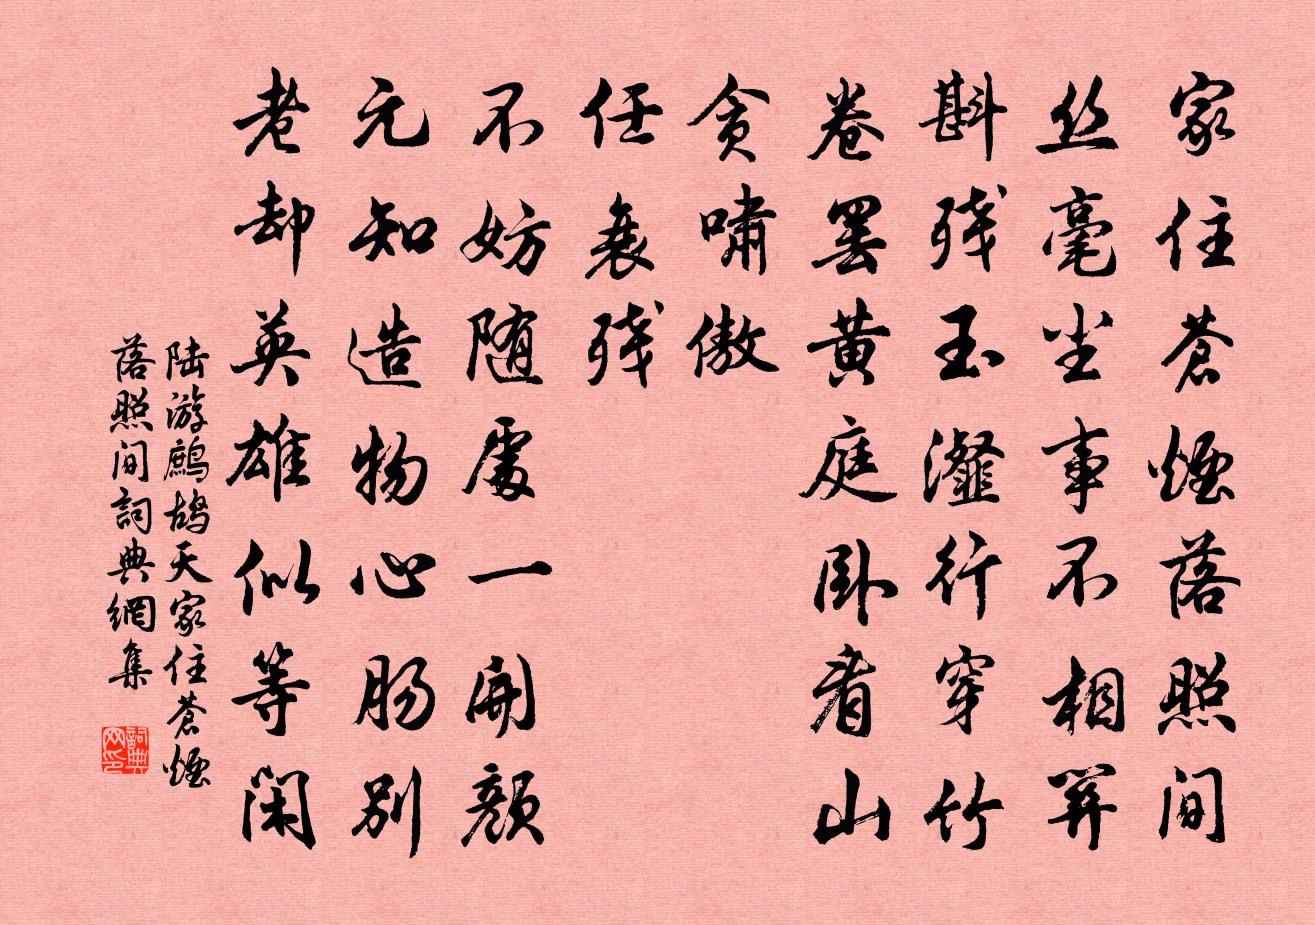 家住蒼煙落照间
丝毫尘事不相关
斟残玉瀣行穿竹
卷罢黄庭卧看山
贪嘯傲
任衰残
不妨随處一開颜
元知造物心肠别
老却英雄似等闲
陆游鹧鸪天家住蒼煙
落照间詞典網集
詞典
网印